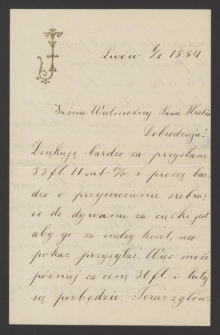 Lwów 9/2 1884
Jaśnie Wielmożny Panie Hrabio
Dobrodzieju!
Dziękuję bardzo za przysłane
33 fl. 11 cnt i proszę bar-
dzo o przywiezienie srebra;
co do dywanu za ciężki jest
aby go za wielki koszt, na
pokaz przysyłać. Więc może
później za cenę 30 fl.
się pozbędzie. Teraz zgłow